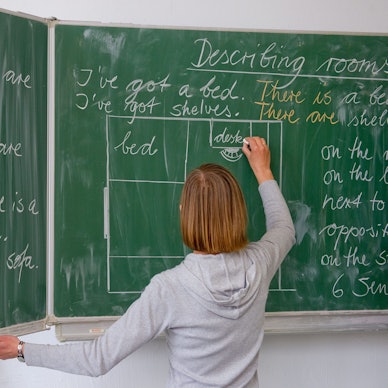 are
are
is a
sofa.
Describing rooms
I've got a bed.
I've got shelves.
There is a be
There are shel
bed
desk
on the
on the
next to
opposit
on the
6 Sen